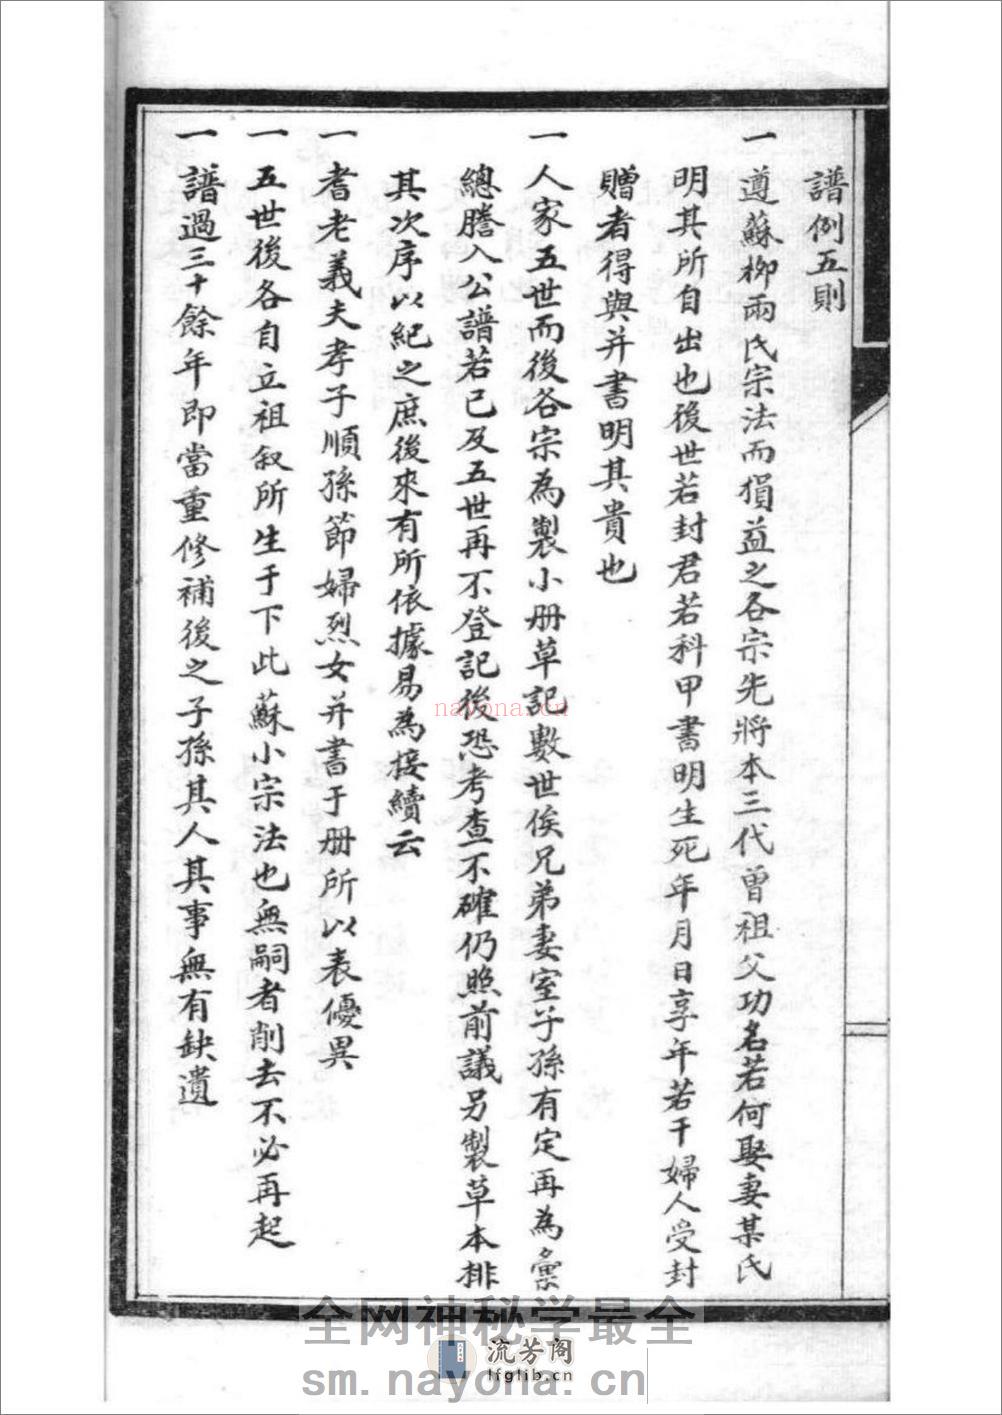 譜例五則
一 遵蘇柳兩氏宗法而損益之各宗先將本三代曾祖父功名若何娶妻某氏
明其所自出也後世若封君若科甲書明生死年月日享年若干婦人受封
贈者得與并書明其貴也
一 人家五世而後各宗為製小冊草記數世俟兄弟妻室子孫有定再為彙
總謄入公譜若已及五世再不登記後恐考查不確仍照前議另製草本排
其次序以紀之庶後來有所依據易為接續云
一 耆老義夫孝子順孫節婦烈女并書于冊所以表優異
一 五世後各自立祖叙所生于下此蘇小宗法也無嗣者削去不必再起
一 譜過三十餘年即當重修補後之子孫其人其事無有缺遺
nayona.cn
全网神秘学最全
流芳阁
lfglib.cn
sm.nayona.cn